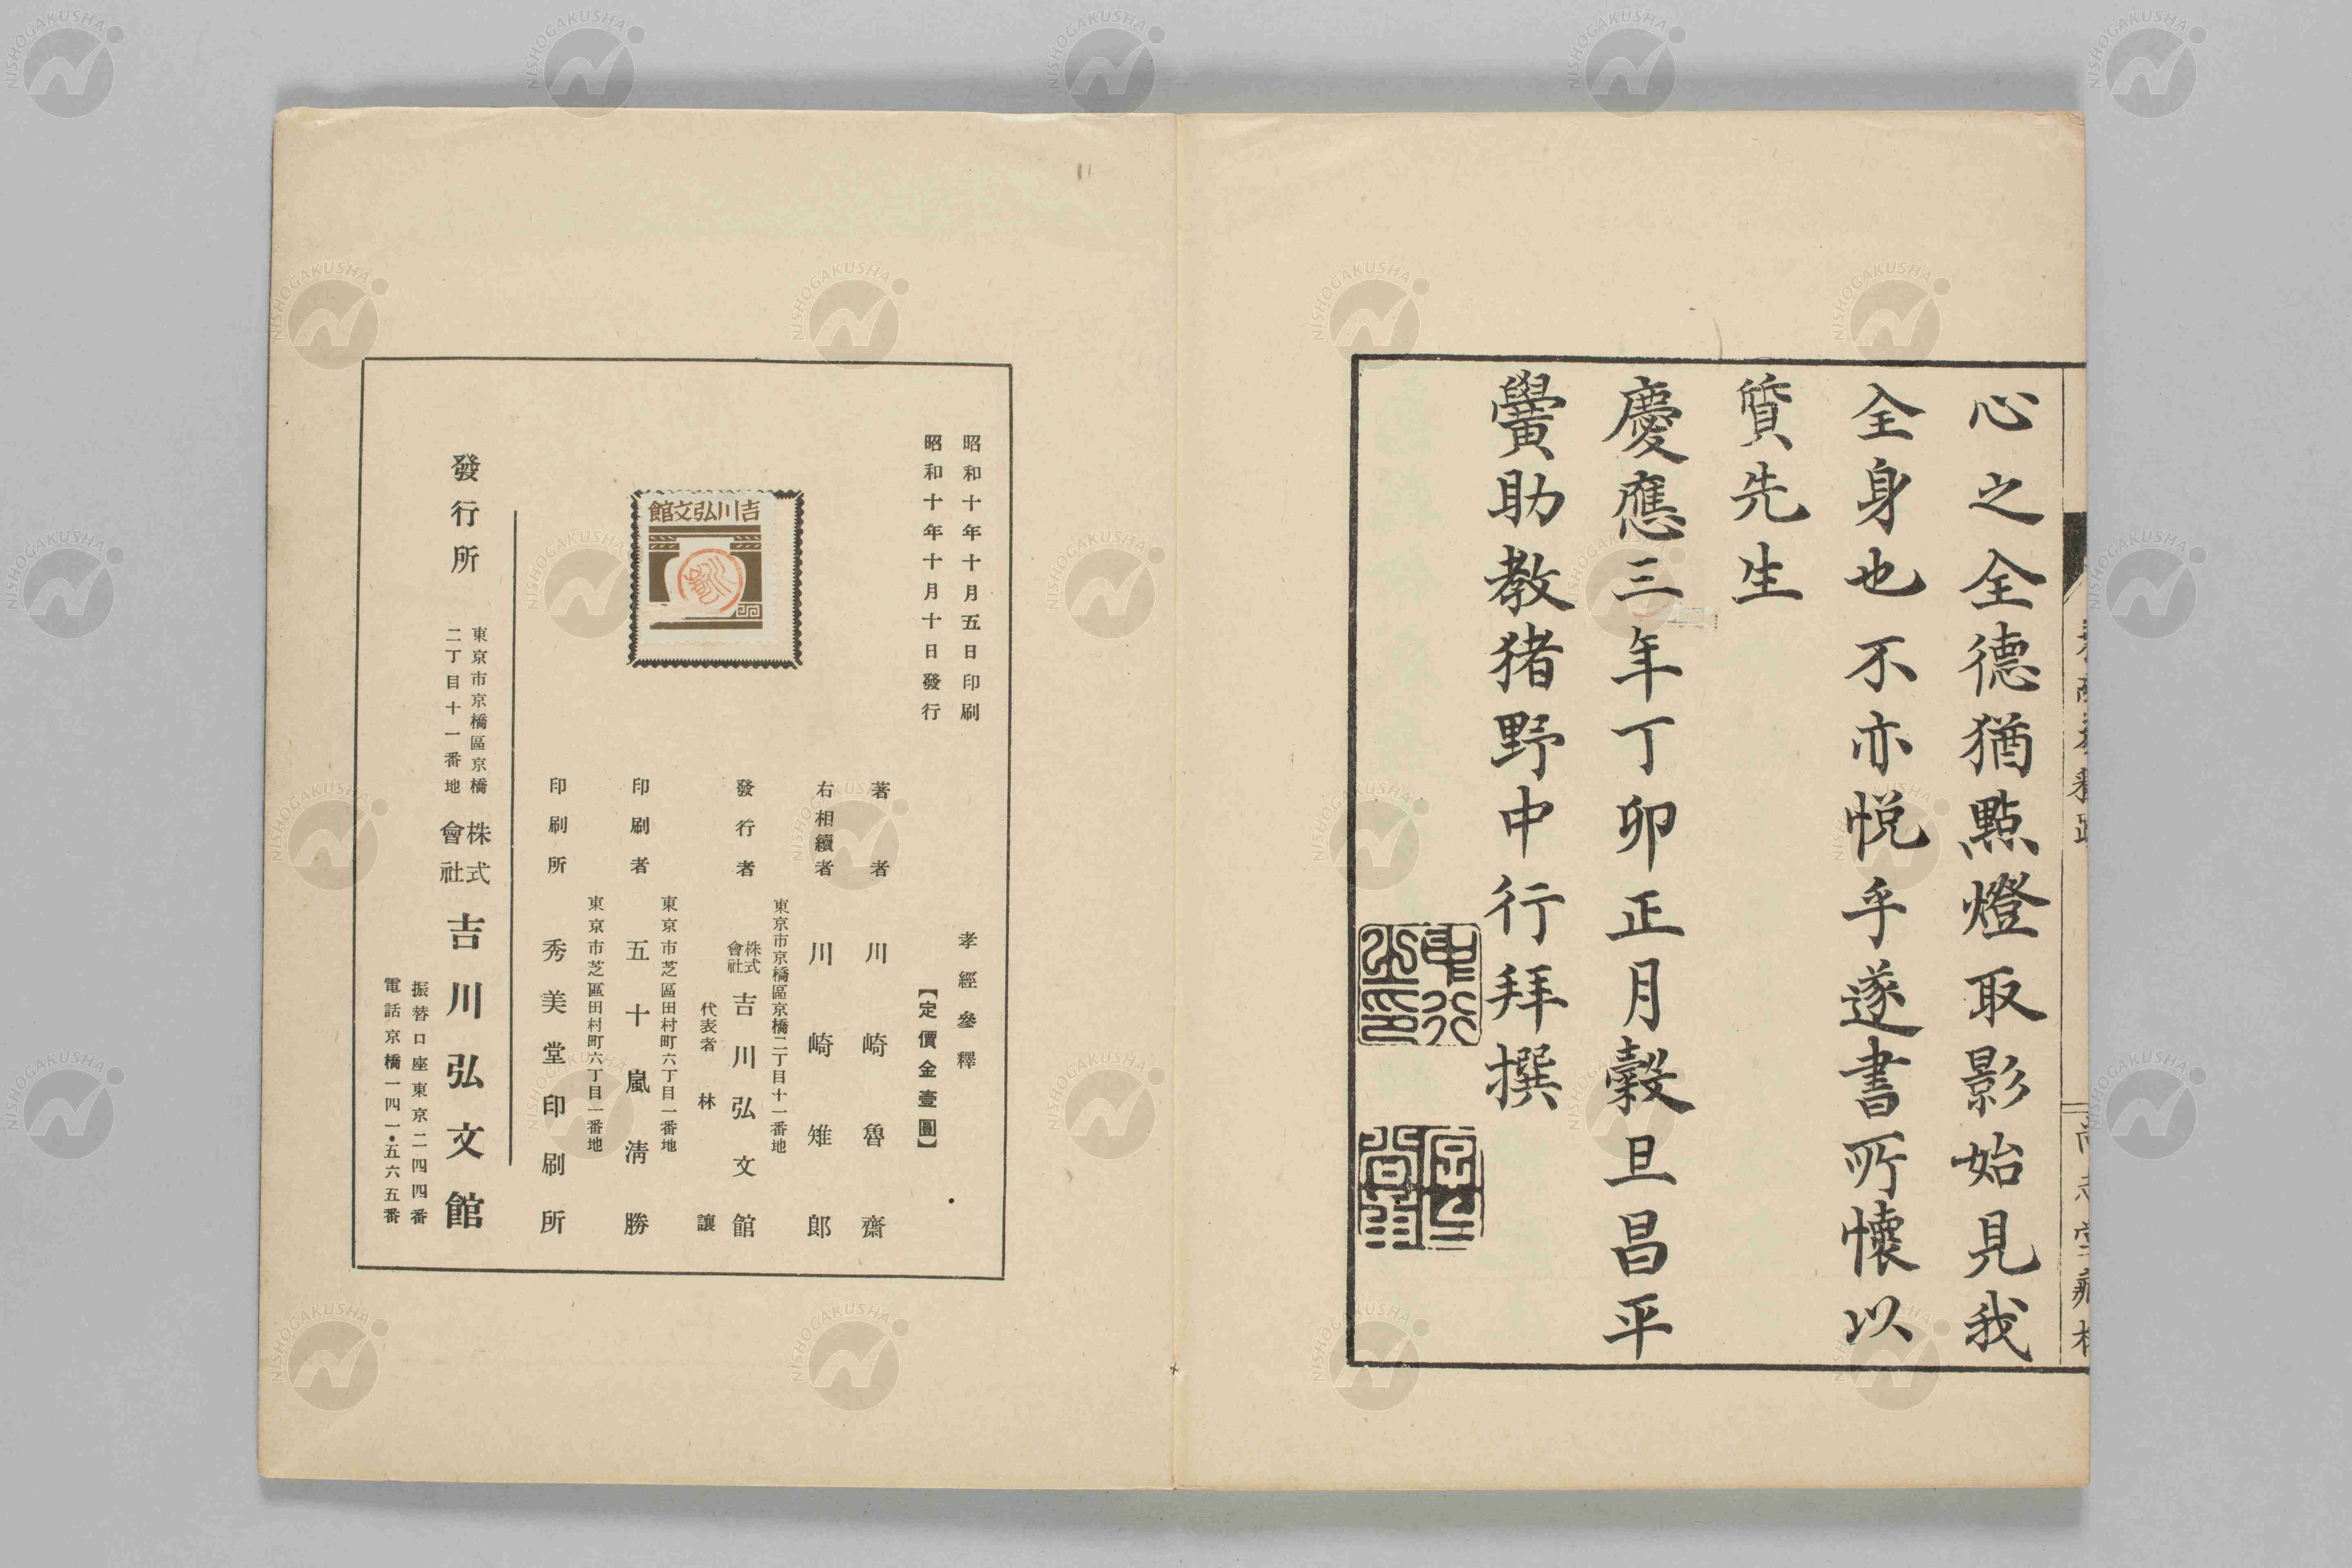 心之全德猶點燈取影始見我
全身也不亦悅乎遂書所懷以
質先生
慶應三年丁卯正月穀旦昌平
黌助教猪野中行拜撰
中行之印
尚志堂藏梓
孝經參釋
【定價金壹圓】
昭和十年十月五日印刷
昭和十年十月十日發行
著者 川崎魯齋
右相續者 川崎雉郎
東京市京橋區京橋二丁目十一番地
發行者 株式會社 吉川弘文館
代表者 林讓
東京市芝區田村町六丁目一番地
印刷者 五十嵐淸勝
東京市芝區田村町六丁目一番地
印刷所 秀美堂印刷所
吉川弘文館
發行所
東京市京橋區京橋
二丁目十一番地
株式會社 吉川弘文館
振替口座東京二四四番
電話京橋一四一・五六五番
NISHOGAKUSHA